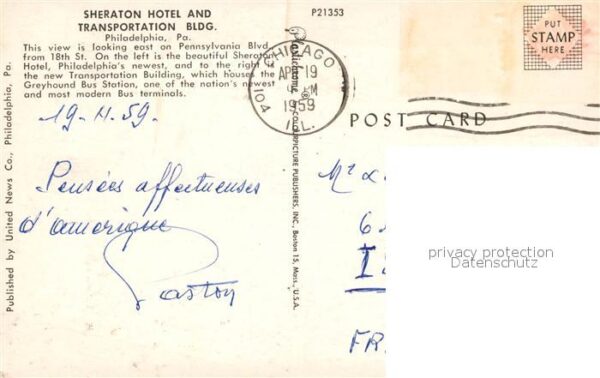 SHERATON HOTEL AND
TRANSPORTATION BLDG.
Philadelphia, Pa.
This view is looking east on Pennsylvania Blvd.
from 18th St. On the left is the beautiful Sheraton
Hotel, Philadelphia's newest, and to the right is
the new Transportation Building, which houses the
Greyhound Bus Station, one of the nation's newest
and most modern Bus terminals.
P21353
PUT
STAMP
HERE
CHICAGO
APR 19
M
1959
ILL.
104
POST CARD
19.4.59.
Pensées affectueuses
d'amérique
Gaston
Mr
6
I
FR
Published by United News Co., Philadelphia, Pa.
Plastichrome ® by COLOURPICTURE PUBLISHERS, INC., Boston 15, Mass., U.S.A.
privacy protection
Datenschutz